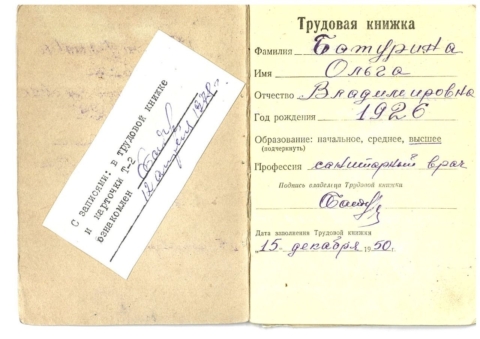 С записями: в трудовой книжке
и карточки Т-2
ознакомлен
12 апреля 1978г.
Трудовая книжка
Фамилия Батурина
Имя Ольга
Отчество Владимировна
Год рождения 1926
Образование: начальное, среднее, высшее
(подчеркнуть)
Профессия санитарный врач
Подпись владельца Трудовой книжки
Дата заполнения Трудовой книжки
15 декабря 1950г.